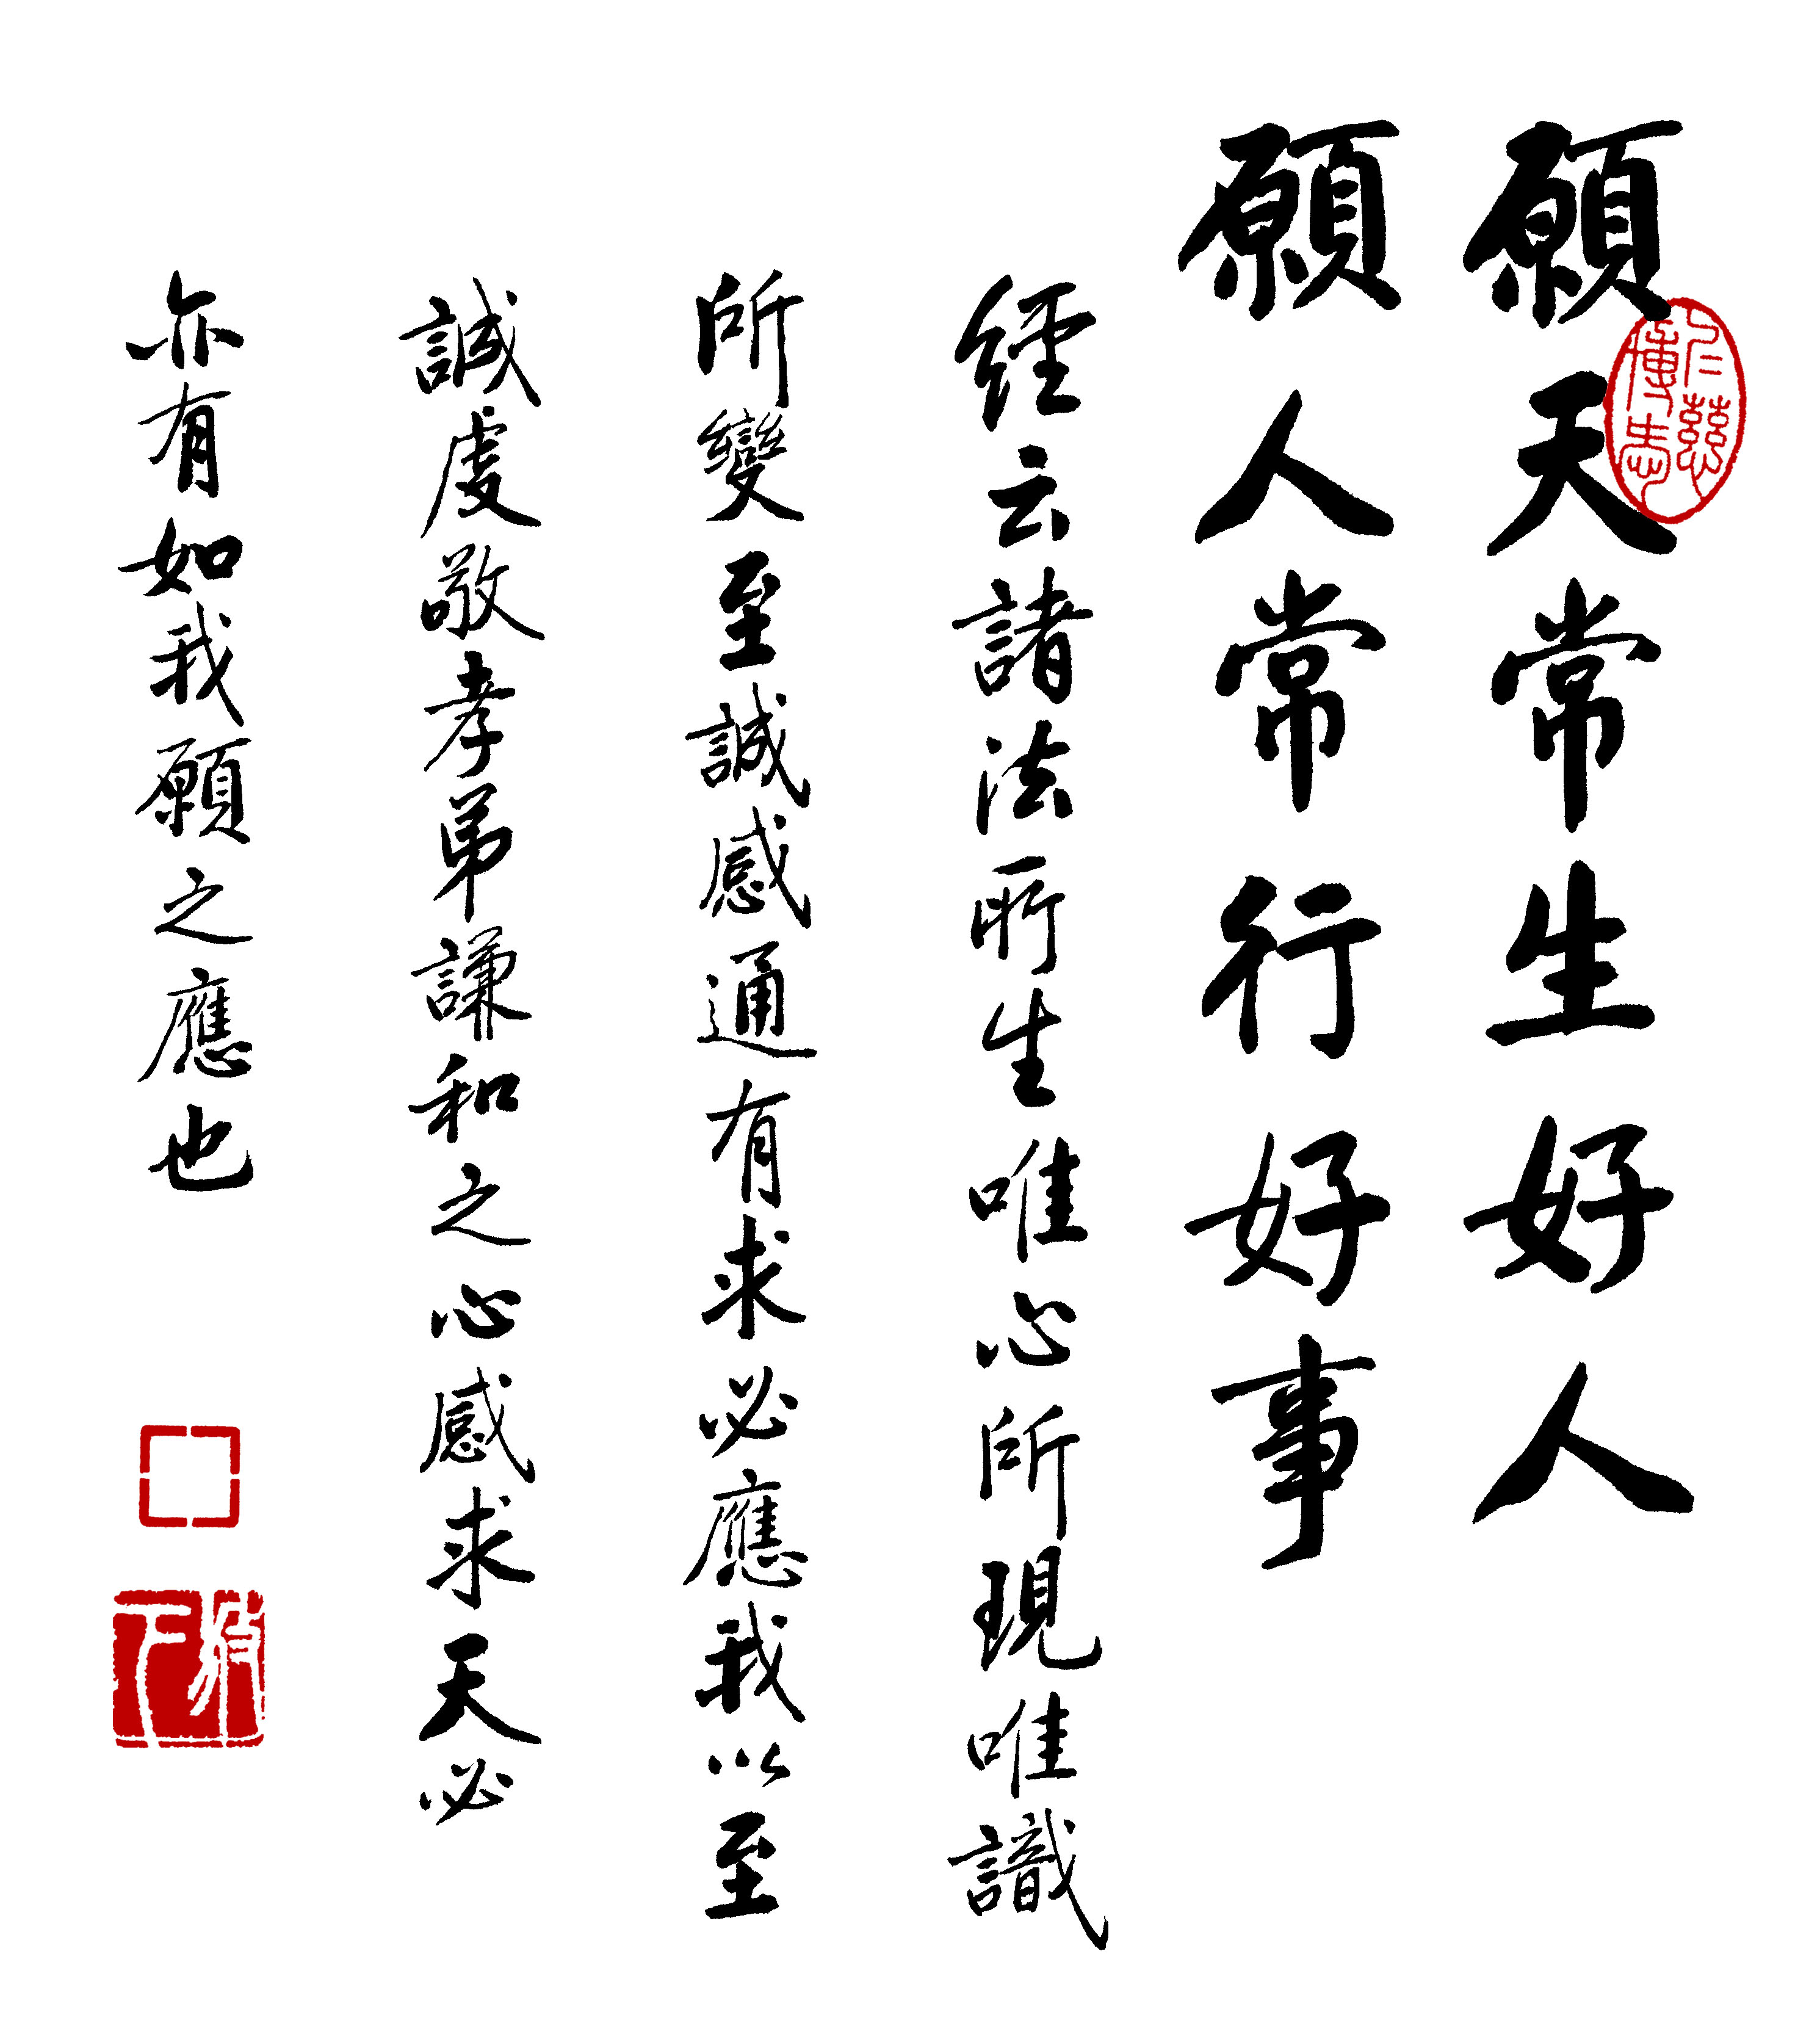 願天常生好人
願人常行好事
經云諸法所生唯心所現唯識
所變至誠感通有求必應我以至
誠虔敬孝弟謙和之心感求天必
亦有如我願之應也
仁慈博愛